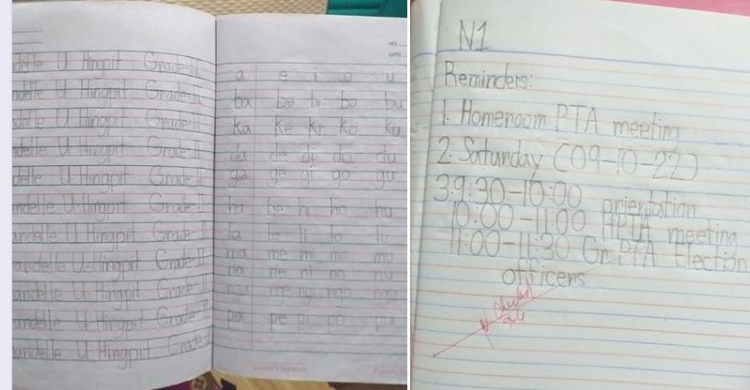 delle U Hingpit Grade-II
delle U Hingpit Grade-II
delle U Hingpit Grade-II
delle U Hingpit Grade-II
delle U Hingpit Grade-II
ndelle U Hingpit Grade-II
andelle U Hingpit Grade-II
andelle U Hingpit Grade-II
andelle U Hingpit Grade-II
andelle U Hingpit Grade-II
andelle U Hingpit Grade
NO
DATE
a e i o u
ba be bi bo bu
ka ke ki ko ku
da de di do du
ga ge gi go gu
ha he hi ho hu
la le li lo lu
ma me mi mo mu
na ne ni no nu
nga nge ngi ngo ngu
pa pe pi po pu
N1
Reminders:
1. Homeroom PTA meeting
2. Saturday (09-10-22)
3.9:30-10:00 orientation
10:00-11:00 HPTA meeting
11:00-11:30 Gr. PTA Election
officers